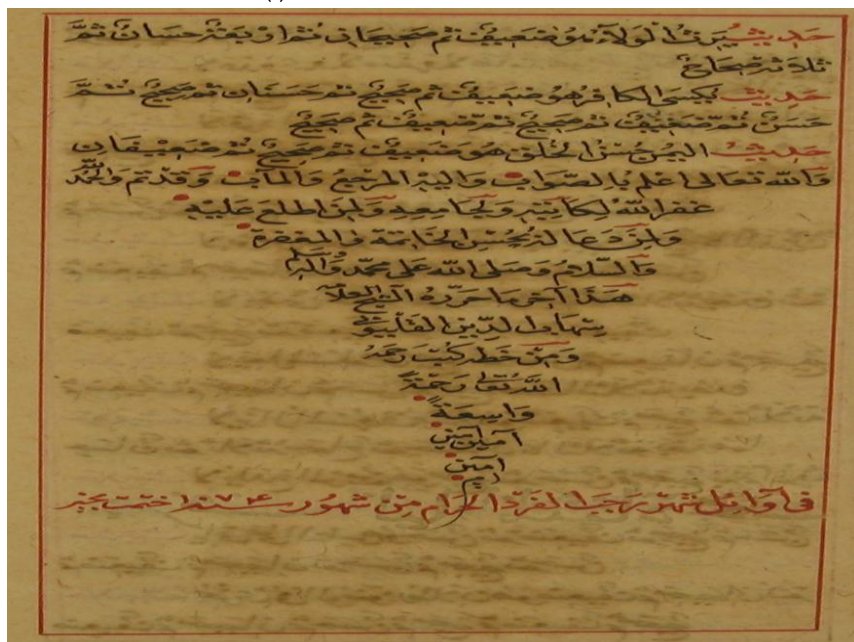 حديث يرث الولاء هو ضعيف ثم صحيحان ثم اربعة حسان ثم
ثلاثة صحاح
حديث يكسى الكافر هو ضعيف ثم صحيح ثم حسان ثم صحيح ثم
حسن ثم ضعيف ثم صحيح ثم ضعيف ثم صحيح
حديث اليمن حسن الخلق هو ضعيف ثم صحيح ثم ضعيفان
والله تعالى اعلم بالصواب واليه المرجع والمآب وقد تم والحمد لله
غفر الله لكاتبه ولجامعه ولمن اطلع عليه
ولمن دعا له بحسن الخاتمة والمغفرة
والسلام وصلى الله على محمد وآله
هذا آخر ما حرره الشيخ العلامة
شهاب الدين القليوبي
ومن خطه كتب رحمه
الله تعالى رحمة
واسعة
آمين آمين
امين
في أوائل شهر رجب الفرد الحرام من شهور سنة ١٠٧٤ ختمت بخير